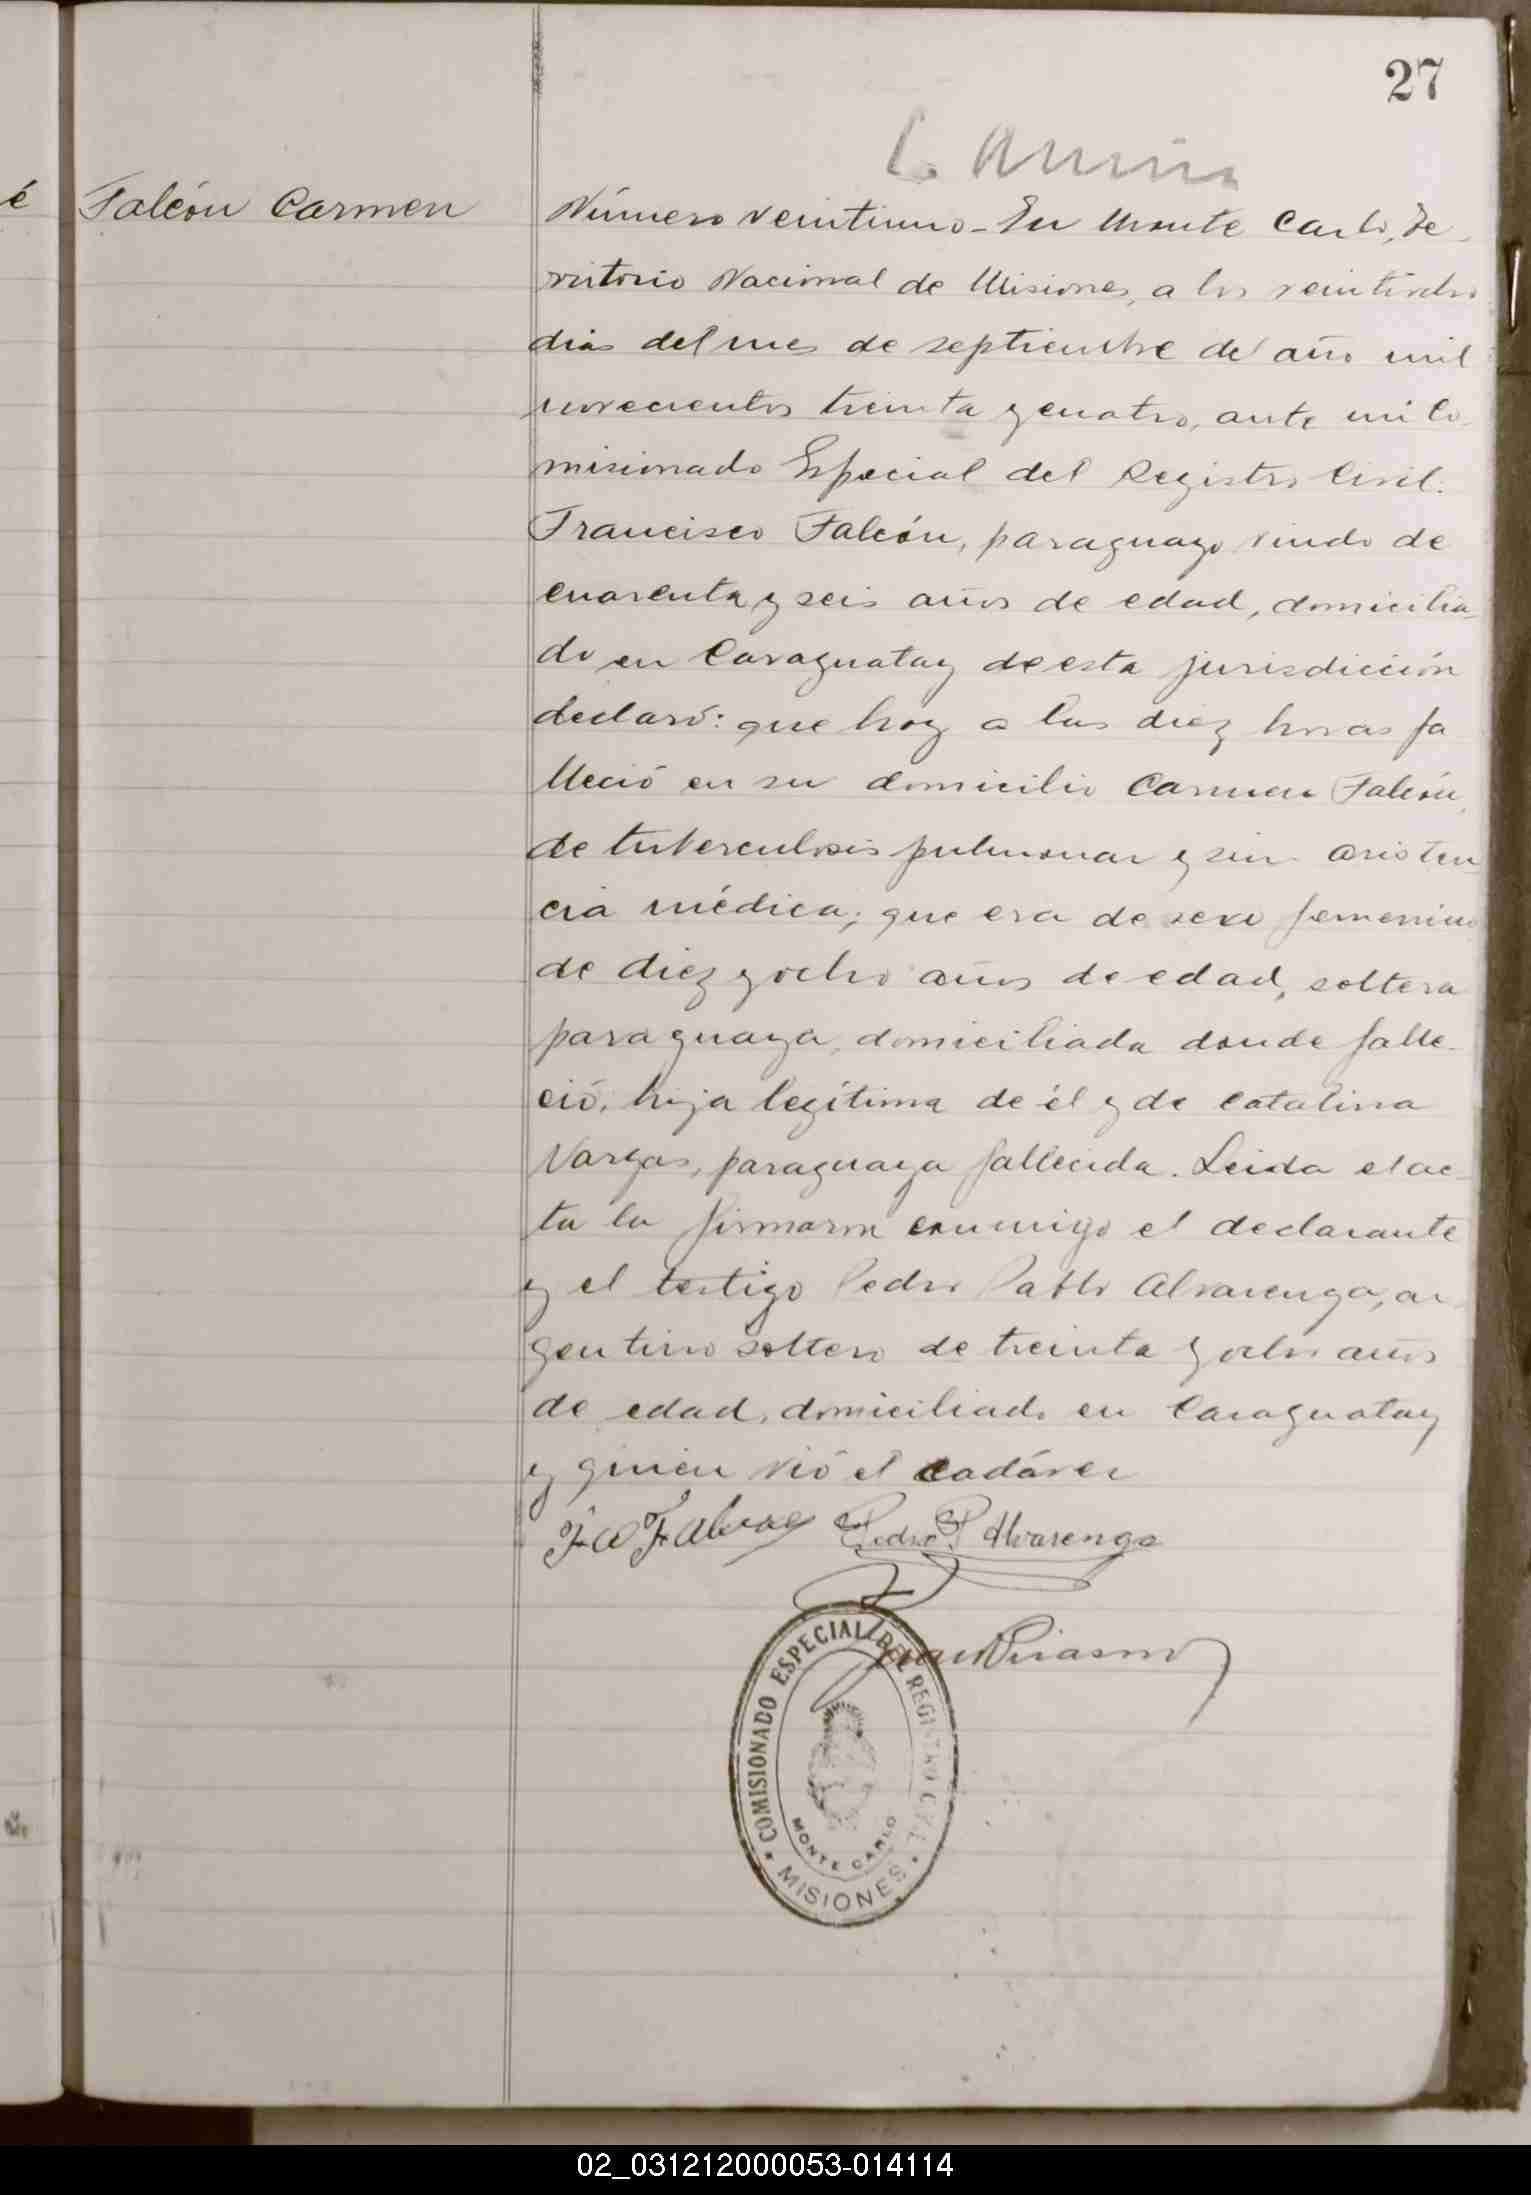 27
é
Falcón Carmen
Número veintiuno - En Monte Carlo, Te
rritorio Nacional de Misiones, a los veintiocho
dias del mes de septiembre del año mil
novecientos treinta y cuatro, ante mi Co
misionado Especial del Registro Civil:
Francisco Falcón, paraguayo viudo de
cuarenta y seis años de edad, domicilia
do en Caraguatay de esta jurisdicción
declaró: que hoy a las diez horas fa
lleció en su domicilio Carmen Falcón,
de tuberculosis pulmonar y sin asisten
cia médica; que era de sexo femenino
de diez y ocho años de edad, soltera
paraguaya, domiciliada donde falle-
ció, hija legítima de él y de Catalina
Vargas, paraguaya fallecida. Leida el ac-
ta la firmaron conmigo el declarante
y el testigo Pedro Pablo Alvarenga, ar
gentino soltero de treinta y ocho años
de edad, domiciliado en Caraguatay
y quien vió el cadáver
Pedro P Alvarenga
COMISIONADO ESPECIAL DEL REGISTRO CIVIL
MONTE CARLO
MISIONES
02_031212000053-014114